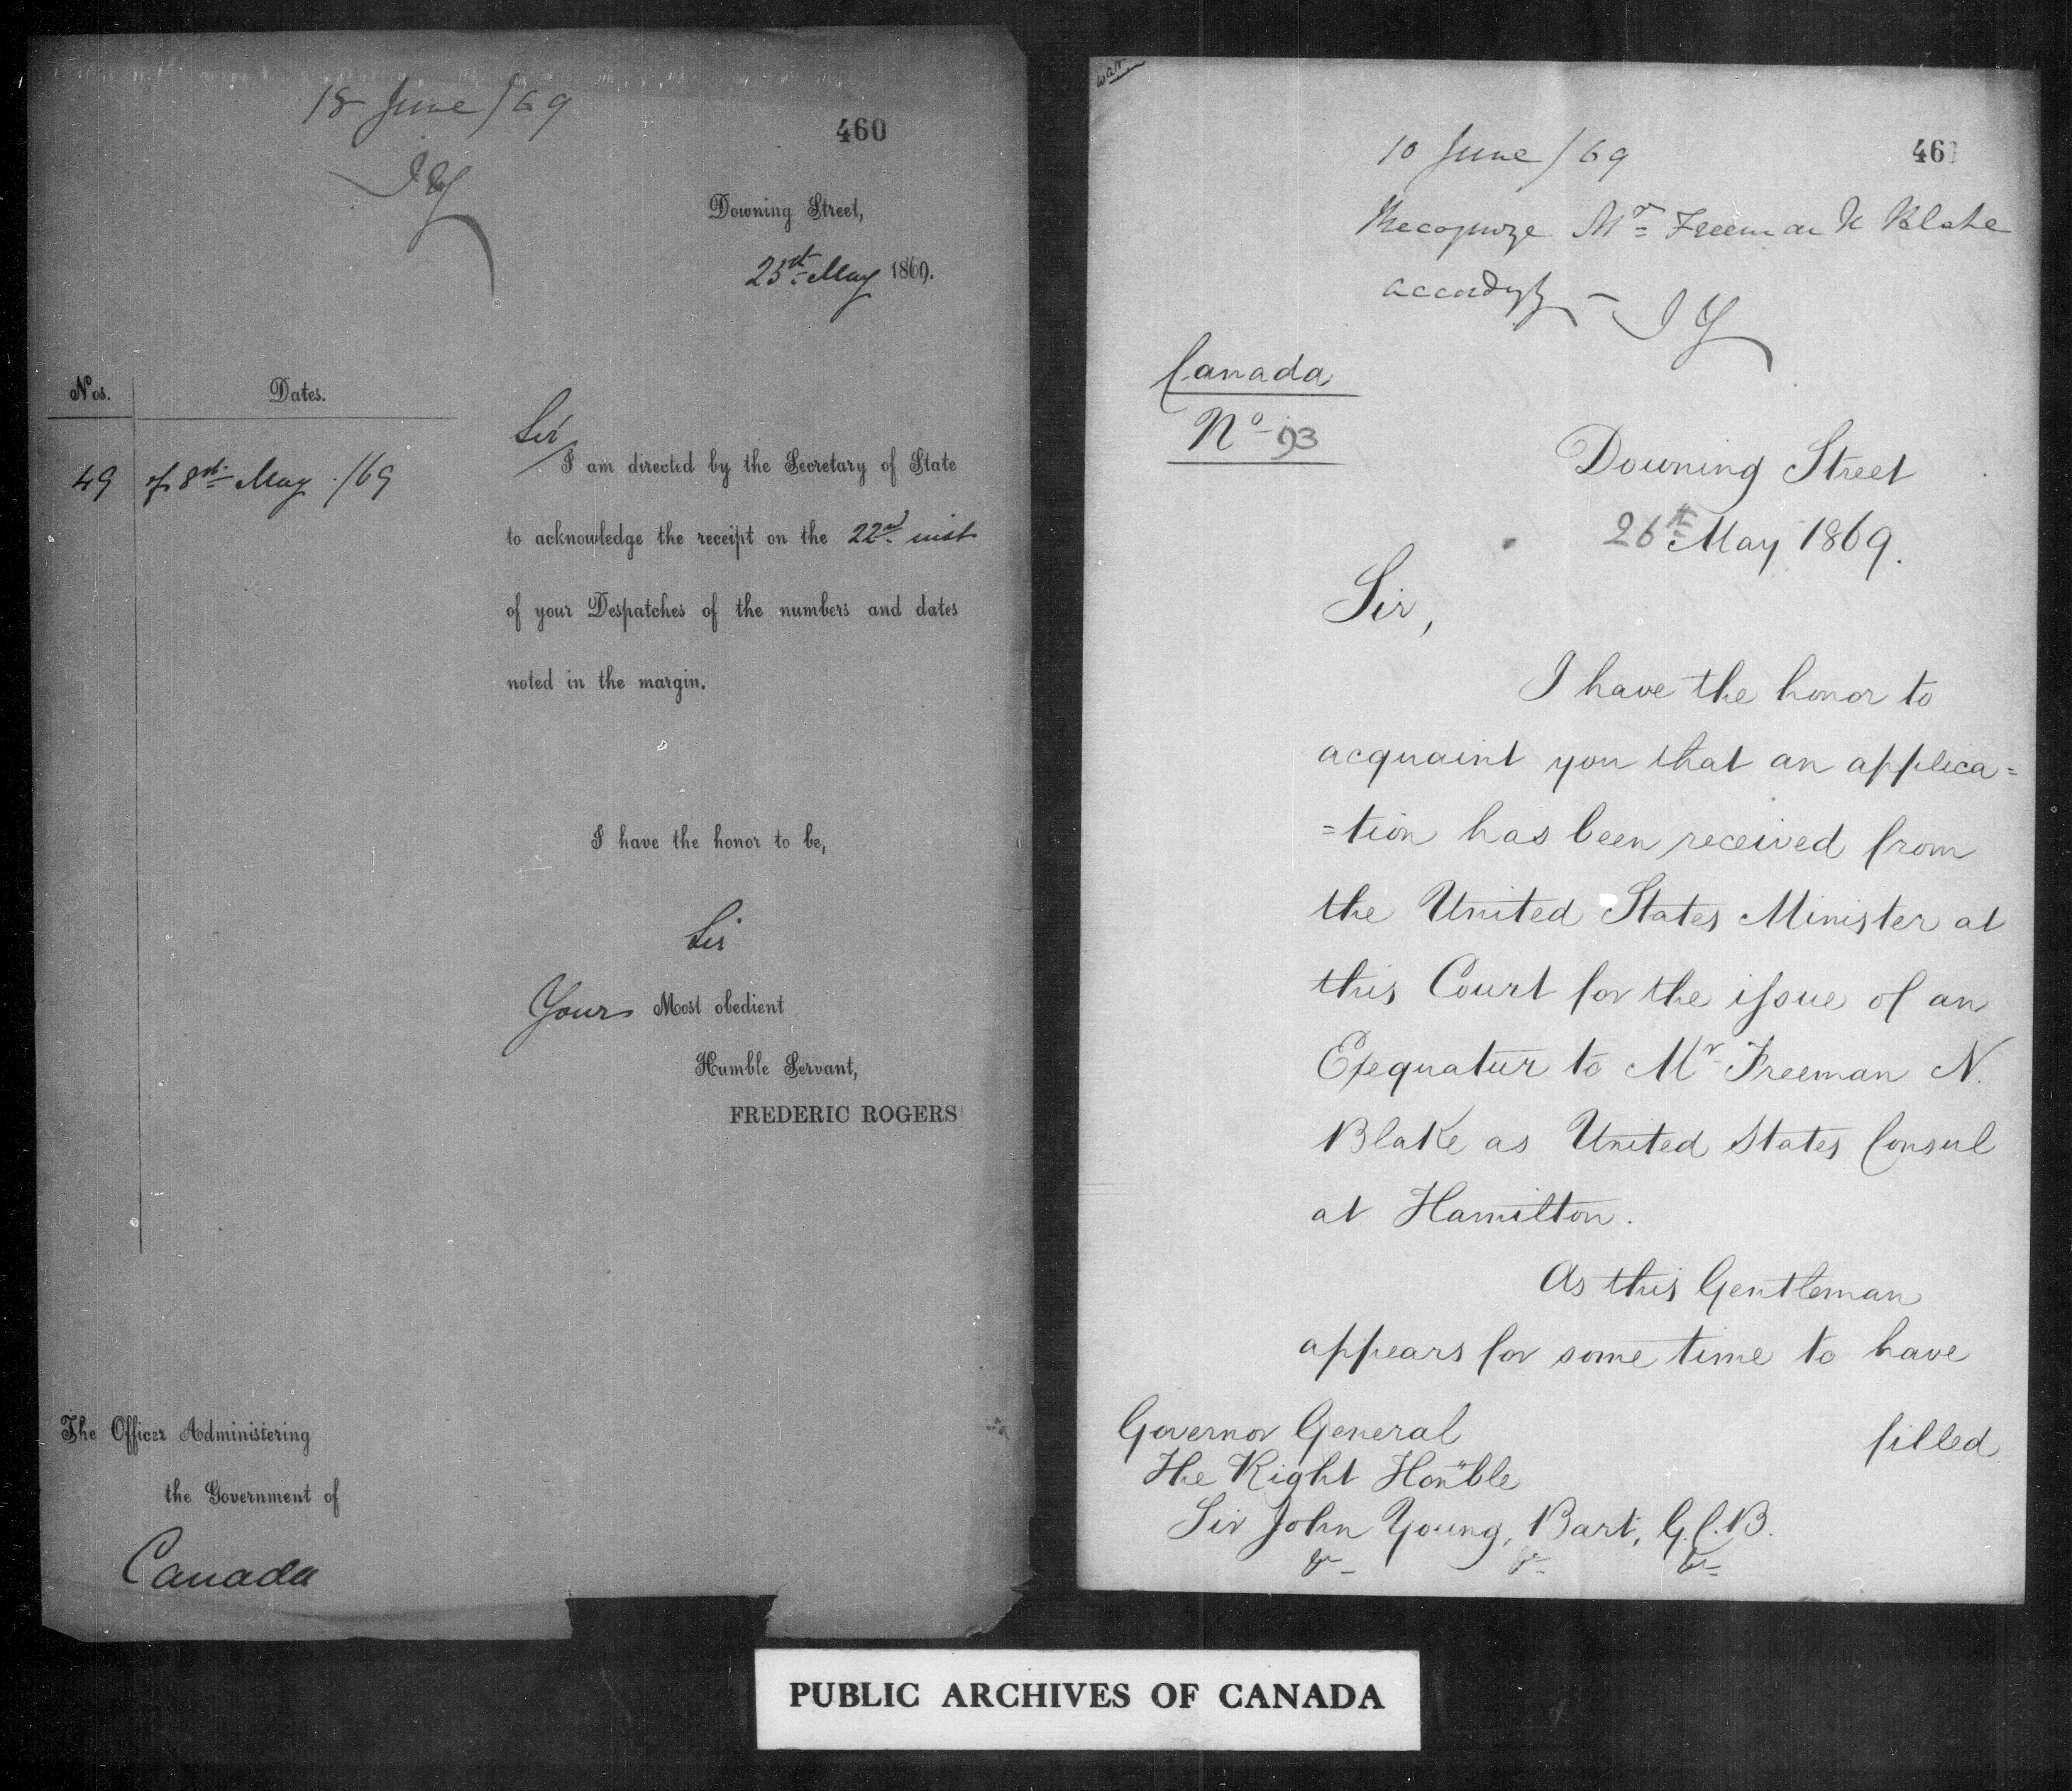 18 June/69
JY
460
Downing Street,
25th May 1869.
Nos. Dates.
49 of 8th May /69
Sir
I am directed by the Secretary of State
to acknowledge the receipt on the 22nd inst
of your Despatches of the numbers and dates
noted in the margin.
I have the honor to be,
Sir
Yours Most obedient
Humble Servant,
FREDERIC ROGERS
The Officer Administering
the Government of
Canada
10 June/69
461
Recognize Mr Freeman N Blake
accordgly – JY
Canada
No 93
Downing Street
26th May 1869.
Sir,
I have the honor to
acquaint you that an applica=
=tion has been received from
the United States Minister at
this Court for the issue of an
Exequatur to Mr Freeman N.
Blake as United States Consul
at Hamilton.
As this Gentleman
appears for some time to have
filled
Governor General
The Right Honble
Sir John Young, Bart, G.C.B.
&c &c &c
PUBLIC ARCHIVES OF CANADA